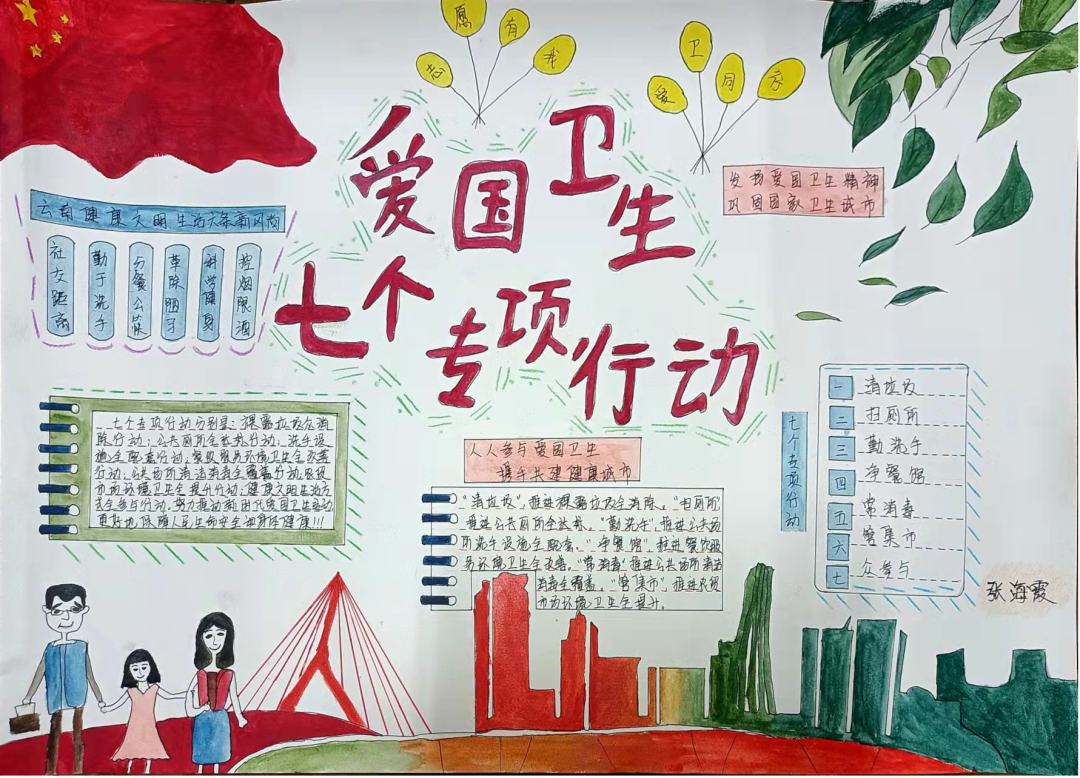 志愿有我
爱卫同行
爱国卫生
七个专项行动
发扬爱国卫生精神
巩固国家卫生城市
云南健康文明生活六条新风尚
社交距离
勤于洗手
分餐公筷
革除陋习
科学健身
控烟限酒
七个专项行动分别是：裸露垃圾全消
除行动；公共厕所全达标行动、洗手设
施全配套行动；餐饮服务环境卫生全改善
行动；公共场所清洁消毒全覆盖行动；农贸
市场环境卫生全提升行动；健康文明生活方
式全参与行动，努力推动新时代爱国卫生运动
更好地保障人民生命安全和身体健康！！！
人人参与爱国卫生
携手共建健康城市
“清垃圾”，推进裸露垃圾全消除。“扫厕所”
推进公共厕所全达标。“勤洗手”，推进公共场
所洗手设施全配套。“净餐馆”，推进餐饮服
务环境卫生全改善。“常消毒”推进公共场所清洁
消毒全覆盖。“管集市”，推进农贸
市场环境卫生全提升。
七个专项行动
一 清垃圾
二 扫厕所
三 勤洗手
四 净餐馆
五 常消毒
六 管集市
七 众参与
张海霞